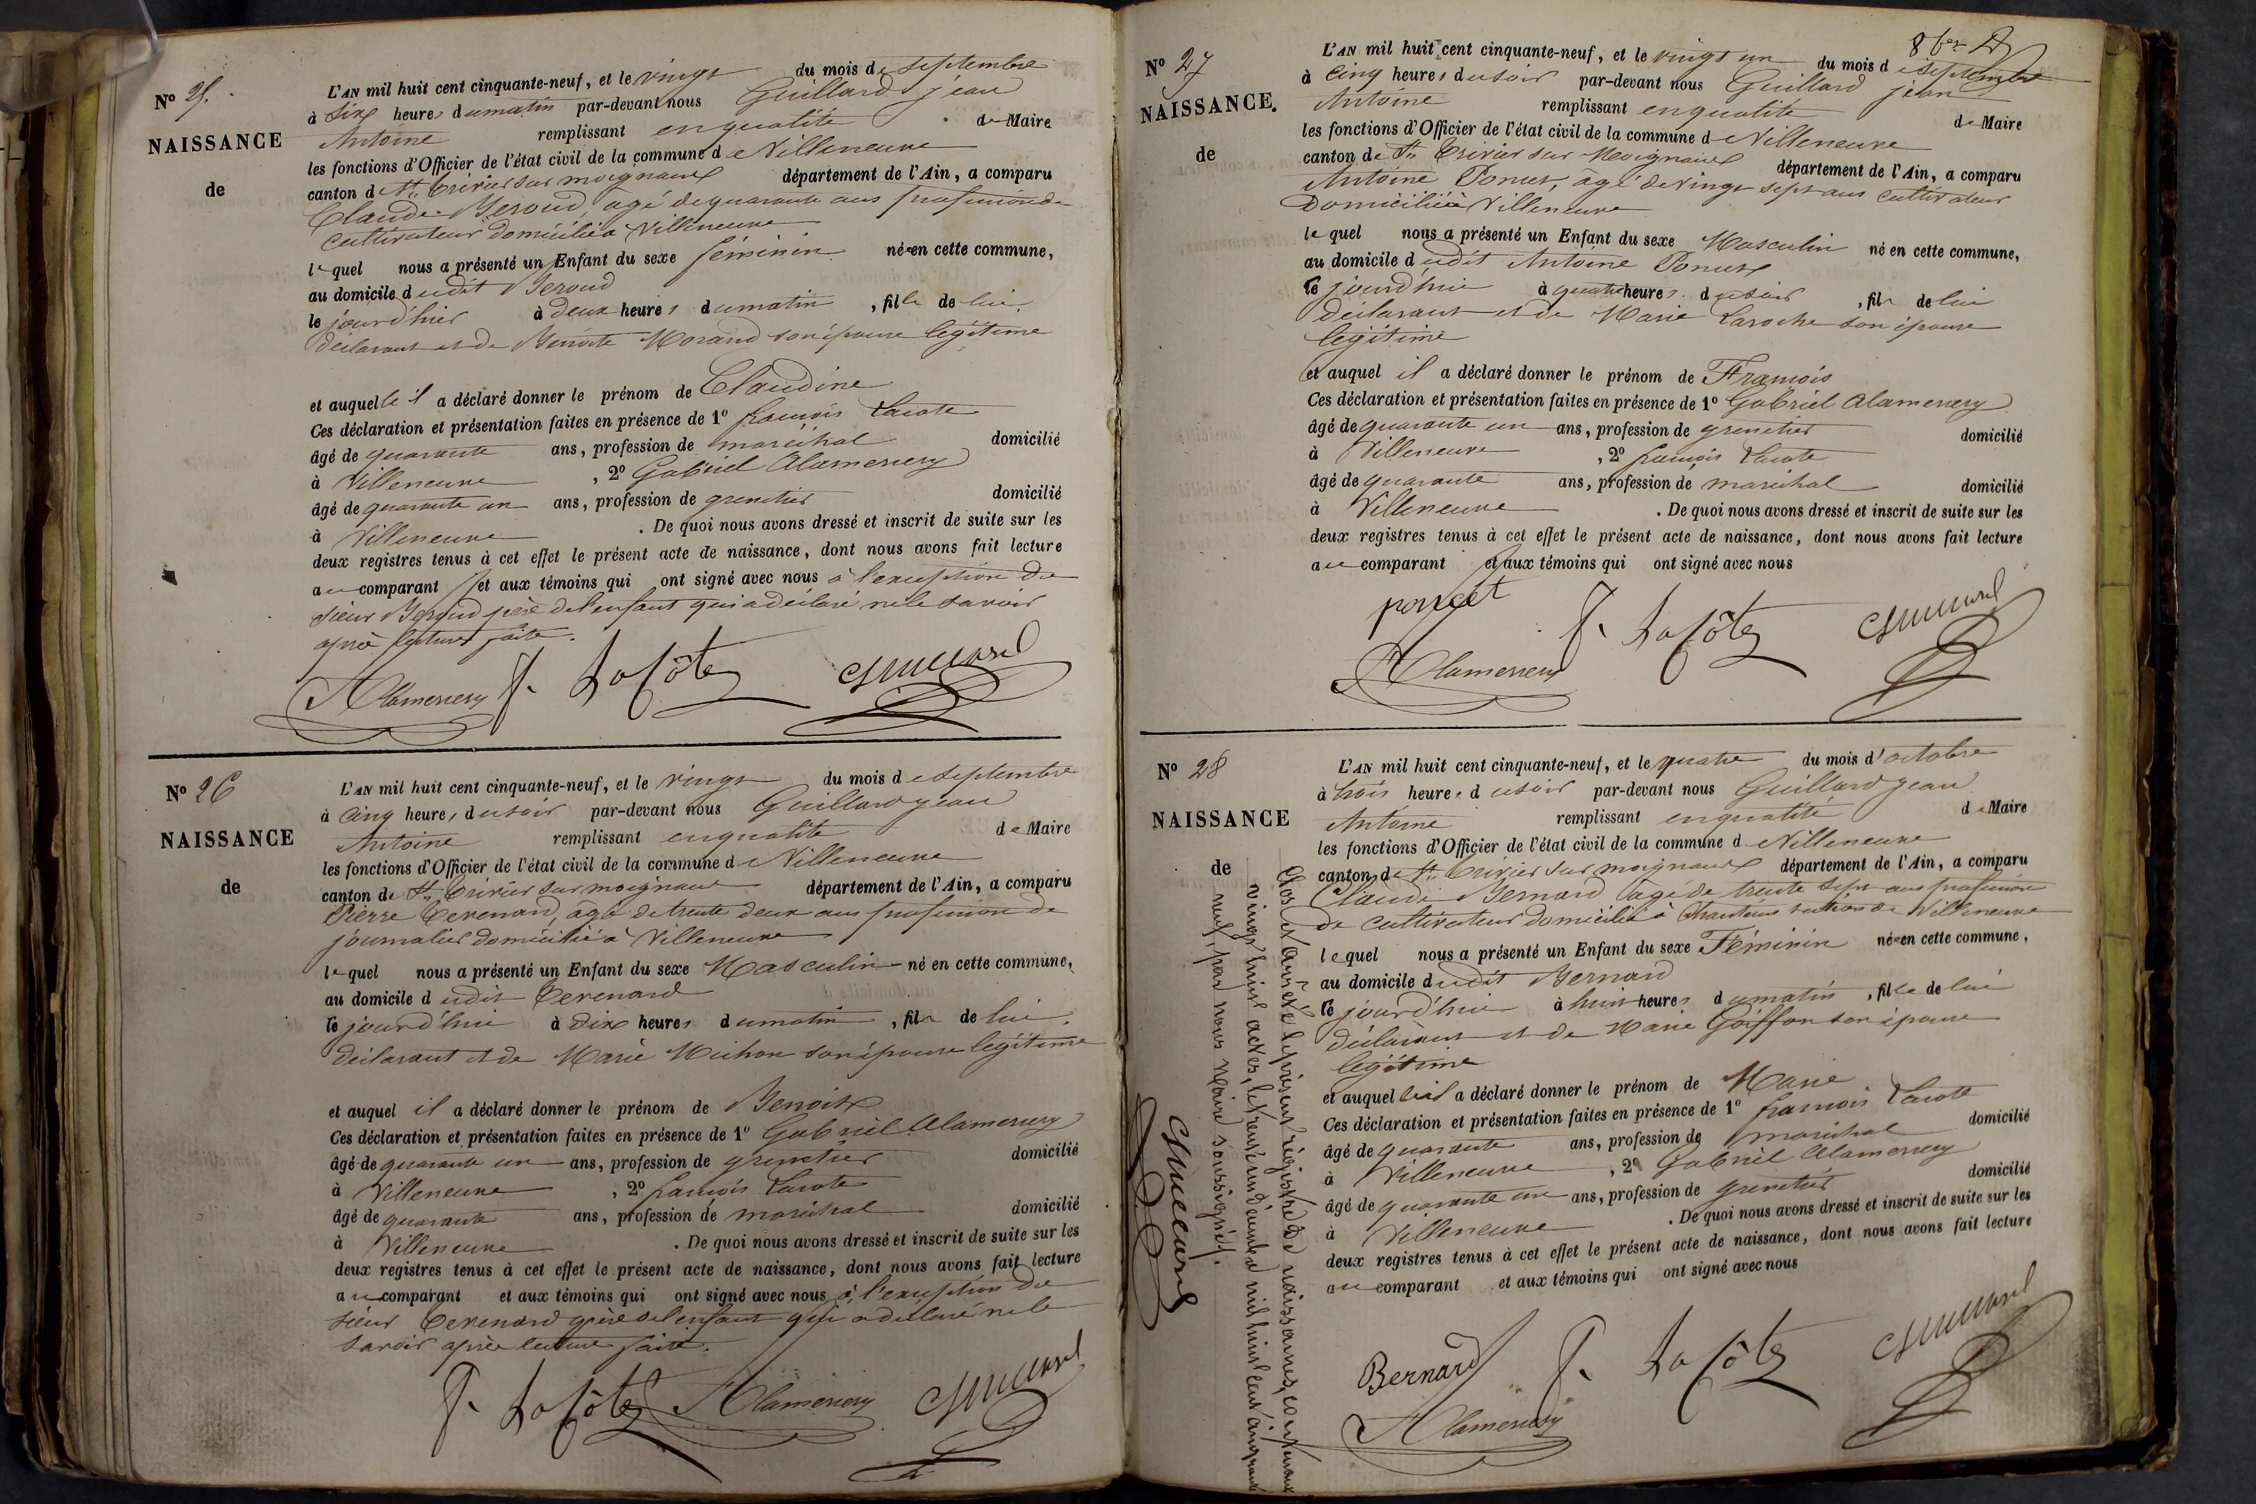 N° 25.
NAISSANCE
de
L'AN mil huit cent cinquante-neuf, et le vingt du mois de septembre
à six heures du matin par-devant nous Guillard jean
Antoine remplissant en qualité de Maire
les fonctions d'Officier de l'état civil de la commune de Villeneuve
canton de St Trivier sur moignans département de l'Ain, a comparu
Claude Beroud, agé de quarante ans profession de
cultivateur domicilié à Villeneuve
lequel nous a présenté un Enfant du sexe féminin née en cette commune,
au domicile dudit Beroud
le jourd'hier à deux heures du matin, fille de lui
déclarant et de Benoite Morand son épouse légitime
et auquelle il a déclaré donner le prénom de Claudine
Ces déclaration et présentation faites en présence de 1° françois Lacote
âgé de quarante ans, profession de maréchal domicilié
à Villeneuve, 2° Gabriel Alamercery
âgé de quarante un ans, profession de grenetier domicilié
à Villeneuve. De quoi nous avons dressé et inscrit de suite sur les
deux registres tenus à cet effet le présent acte de naissance, dont nous avons fait lecture
au comparant et aux témoins qui ont signé avec nous à l'exception du
sieur Beroud père de l'enfant qui a déclaré ne le savoir
après lecture faite.
Alamercery f. La Côte
N° 26
NAISSANCE
de
L'AN mil huit cent cinquante-neuf, et le vingt du mois de septembre
à cinq heures du soir par-devant nous Guillard jean
Antoine remplissant en qualité de Maire
les fonctions d'Officier de l'état civil de la commune de Villeneuve
canton de St Trivier sur moignans département de l'Ain, a comparu
Pierre Tevenard, agé de trente deux ans profession de
journalier domicilié à Villeneuve
lequel nous a présenté un Enfant du sexe Masculin né en cette commune,
au domicile dudit Tevenard
le jourd'hui à dix heures du matin, fils de lui
déclarant et de Marie Michon son épouse légitime
et auquel il a déclaré donner le prénom de Benoit
Ces déclaration et présentation faites en présence de 1° Gabriel Alamercery
âgé de quarante un ans, profession de grenetier domicilié
à Villeneuve, 2° françois Lacote
âgé de quarante ans, profession de maréchal domicilié
à Villeneuve. De quoi nous avons dressé et inscrit de suite sur les
deux registres tenus à cet effet le présent acte de naissance, dont nous avons fait lecture
au comparant et aux témoins qui ont signé avec nous à l'exception du
sieur Tevenard père de l'enfant qui a déclaré ne le
savoir après lecture faite.
f. La Côte Alamercery
8bre
N° 27
NAISSANCE.
de
L'AN mil huit cent cinquante-neuf, et le vingt un du mois de septembre
à cinq heures du soir par-devant nous Guillard jean
Antoine remplissant en qualité de Maire
les fonctions d'Officier de l'état civil de la commune de Villeneuve
canton de St Trivier sur Moignans département de l'Ain, a comparu
Antoine Poncet, âgé de vingt sept ans cultivateur
Domicilié à Villeneuve
lequel nous a présenté un Enfant du sexe Masculin né en cette commune,
au domicile dudit Antoine Poncet
le jourd'hui à quatre heures du soir, fils de lui
déclarant et de Marie Laroche son épouse
légitime
et auquel il a déclaré donner le prénom de François
Ces déclaration et présentation faites en présence de 1° Gabriel Alamercery
âgé de quarante un ans, profession de grenetier domicilié
à Villeneuve, 2° françois Lacote
âgé de quarante ans, profession de maréchal domicilié
à Villeneuve. De quoi nous avons dressé et inscrit de suite sur les
deux registres tenus à cet effet le présent acte de naissance, dont nous avons fait lecture
au comparant et aux témoins qui ont signé avec nous
poncet f. La Côte
Alamercery
N° 28
NAISSANCE
de
L'AN mil huit cent cinquante-neuf, et le quatre du mois d'octobre
à trois heures du soir par-devant nous Guillard jean
Antoine remplissant en qualité de Maire
les fonctions d'Officier de l'état civil de la commune de Villeneuve
canton de St Trivier sur moignans département de l'Ain, a comparu
Claude Bernard agé de trente sept ans profession
de cultivateur domicilié à Chanteins section de Villeneuve
lequel nous a présenté un Enfant du sexe Féminin née en cette commune,
au domicile dudit Bernard
le jourd'hui à huit heures du matin, fille de lui
déclarant et de Marie Goiffon son épouse
légitime
et auquelle il a déclaré donner le prénom de Marie
Ces déclaration et présentation faites en présence de 1° francois Lacote
âgé de quarante ans, profession de maréchal domicilié
à Villeneuve, 2° Gabriel Alamercery
âgé de quarante un ans, profession de grenetier domicilié
à Villeneuve. De quoi nous avons dressé et inscrit de suite sur les
deux registres tenus à cet effet le présent acte de naissance, dont nous avons fait lecture
au comparant et aux témoins qui ont signé avec nous
Bernard f. La Côte
Alamercery
Clos et arrêté le présent régistre de naissances, contenant
vingt huit actes, le trente un décembre mil huit cent cinquante
neuf, par nous Maire soussigné.